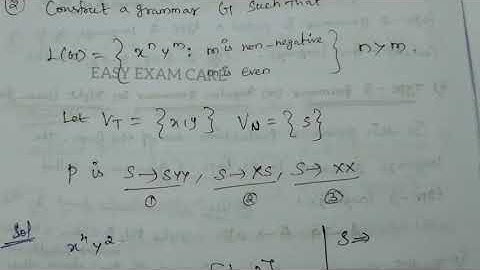 ② Construct a grammar G such that
L(G) = { xⁿ yᵐ : m is non-negative } n > m.
EASY EXAM CARE is even
Let V_T = {x, y} V_N = {S}
P is S → Syy, S → XS, S → XX
① ② ③
Sol xⁿ y² S ⇒